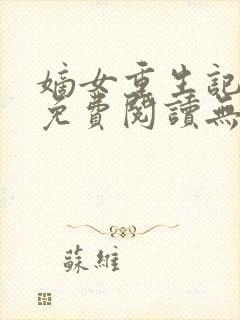 嫡女重生記
免費閱讀無
蘇維